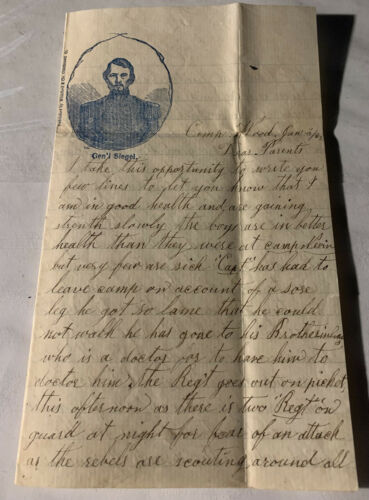 Published by Mitchell & Co. Cincinnati O.
Gen'l Siegel.
Camp Wood Jan
Dear Parents
I take this opportunity to write you
few lines to let you know that I
am in good health and are gaining
strenth slowly the boys are in better
health than they were at camp Nevin
but very few are sick "Capt" has had to
leave camp on account of a sore
leg he got so lame that he could
not walk he has gone to his Brotherinlaw
who is a doctor to have him to
doctor him. the Regt goes out on picket
this afternoon as there is two "Regt" on
guard at night for fear of an attack
as the rebels are scouting around all